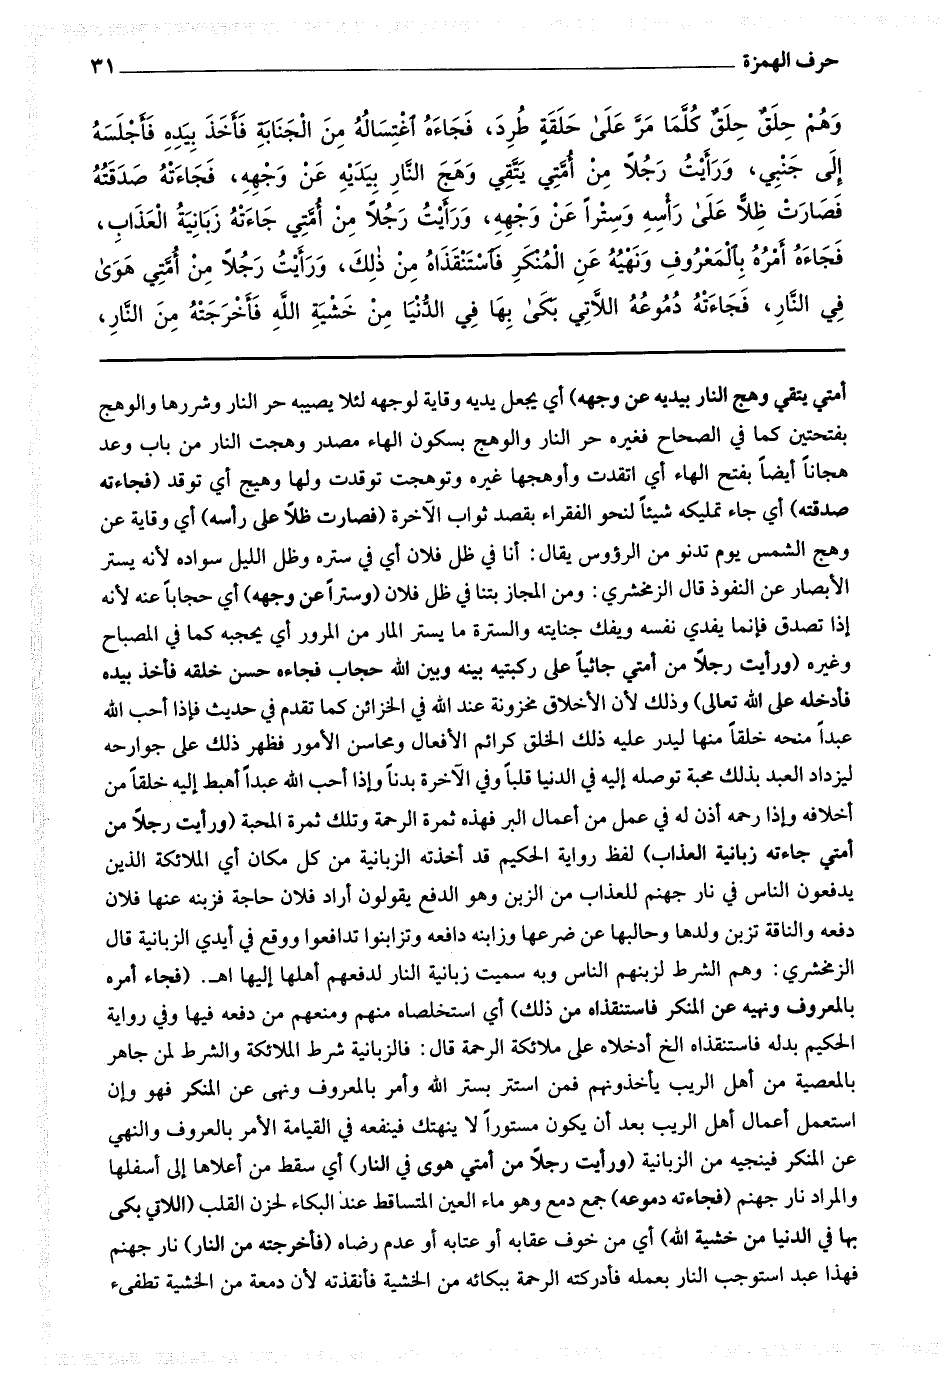 حرف الهمزة ٣١
وَهُمْ حِلَقٌ حِلَقٌ كُلَّمَا مَرَّ عَلَىٰ حَلَقَةٍ طُرِدَ، فَجَاءَهُ ٱغْتِسَالُهُ مِنَ الْجَنَابَةِ فَأَخَذَ بِيَدِهِ فَأَجْلَسَهُ
إِلَى جَنْبِي، وَرَأَيْتُ رَجُلاً مِنْ أُمَّتِي يَتَّقِي وَهَجَ النَّارِ بِيَدَيْهِ عَنْ وَجْهِهِ، فَجَاءَتْهُ صَدَقَتُهُ
فَصَارَتْ ظِلاًّ عَلَىٰ رَأْسِهِ وَسِتْراً عَنْ وَجْهِهِ، وَرَأَيْتُ رَجُلاً مِنْ أُمَّتِي جَاءَتْهُ زَبَانِيَةُ الْعَذَابِ،
فَجَاءَهُ أَمْرُهُ بِٱلْمَعْرُوفِ وَنَهْيُهُ عَنِ الْمُنْكَرِ فَٱسْتَنْقَذَاهُ مِنْ ذٰلِكَ، وَرَأَيْتُ رَجُلاً مِنْ أُمَّتِي هَوَىٰ
فِي النَّارِ، فَجَاءَتْهُ دُمُوعُهُ اللاَّتِي بَكَىٰ بِهَا فِي الدُّنْيَا مِنْ خَشْيَةِ اللَّهِ فَأَخْرَجَتْهُ مِنَ النَّارِ،
أمتي يتقي وهج النار بيديه عن وجهه) أي يجعل يديه وقاية لوجهه لئلا يصيبه حر النار وشررها والوهج
بفتحتين كما في الصحاح فغيره حر النار والوهج بسكون الهاء مصدر وهجت النار من باب وعد
هجاناً أيضاً بفتح الهاء أي اتقدت وأوهجها غيره وتوهجت توقدت ولها وهيج أي توقد (فجاءته
صدقته) أي جاء تمليكه شيئاً لنحو الفقراء بقصد ثواب الآخرة (فصارت ظلاً على رأسه) أي وقاية عن
وهج الشمس يوم تدنو من الرؤوس يقال: أنا في ظل فلان أي في ستره وظل الليل سواده لأنه يستر
الأبصار عن النفوذ قال الزمخشري: ومن المجاز بتنا في ظل فلان (وستراً عن وجهه) أي حجاباً عنه لأنه
إذا تصدق فإنما يفدي نفسه ويفك جنايته والسترة ما يستر المار من المرور أي يحجبه كما في المصباح
وغيره (ورأيت رجلاً من أمتي جاثياً على ركبتيه بينه وبين الله حجاب فجاءه حسن خلقه فأخذ بيده
فأدخله على الله تعالى) وذلك لأن الأخلاق مخزونة عند الله في الخزائن كما تقدم في حديث فإذا أحب الله
عبداً منحه خلقاً منها ليدر عليه ذلك الخلق كرائم الأفعال ومحاسن الأمور فظهر ذلك على جوارحه
ليزداد العبد بذلك محبة توصله إليه في الدنيا قلباً وفي الآخرة بدناً وإذا أحب الله عبداً أهبط إليه خلقاً من
أخلاقه وإذا رحمه أذن له في عمل من أعمال البر فهذه ثمرة الرحمة وتلك ثمرة المحبة (ورأيت رجلاً من
أمتي جاءته زبانية العذاب) لفظ رواية الحكيم قد أخذته الزبانية من كل مكان أي الملائكة الذين
يدفعون الناس في نار جهنم للعذاب من الزبن وهو الدفع يقولون أراد فلان حاجة فزبنه عنها فلان
دفعه والناقة تزبن ولدها وحالبها عن ضرعها وزابنه دافعه وتزابنوا تدافعوا ووقع في أيدي الزبانية قال
الزمخشري: وهم الشرط لزبنهم الناس وبه سميت زبانية النار لدفعهم أهلها إليها اهـ. (فجاء أمره
بالمعروف ونهيه عن المنكر فاستنقذاه من ذلك) أي استخلصاه منهم ومنعهم من دفعه فيها وفي رواية
الحكيم بدله فاستنقذاه الخ أدخلاه على ملائكة الرحمة قال: فالزبانية شرط الملائكة والشرط لمن جاهر
بالمعصية من أهل الريب يأخذونهم فمن استتر بستر الله وأمر بالمعروف ونهى عن المنكر فهو وإن
استعمل أعمال أهل الريب بعد أن يكون مستوراً لا ينهتك فينفعه في القيامة الأمر بالعروف والنهي
عن المنكر فينجيه من الزبانية (ورأيت رجلاً من أمتي هوى في النار) أي سقط من أعلاها إلى أسفلها
والمراد نار جهنم (فجاءته دموعه) جمع دمع وهو ماء العين المتساقط عند البكاء لحزن القلب (اللاتي بكى
بها في الدنيا من خشية الله) أي من خوف عقابه أو عتابه أو عدم رضاه (فأخرجته من النار) نار جهنم
فهذا عبد استوجب النار بعمله فأدركته الرحمة ببكائه من الخشية فأنقذته لأن دمعة من الخشية تطفىء